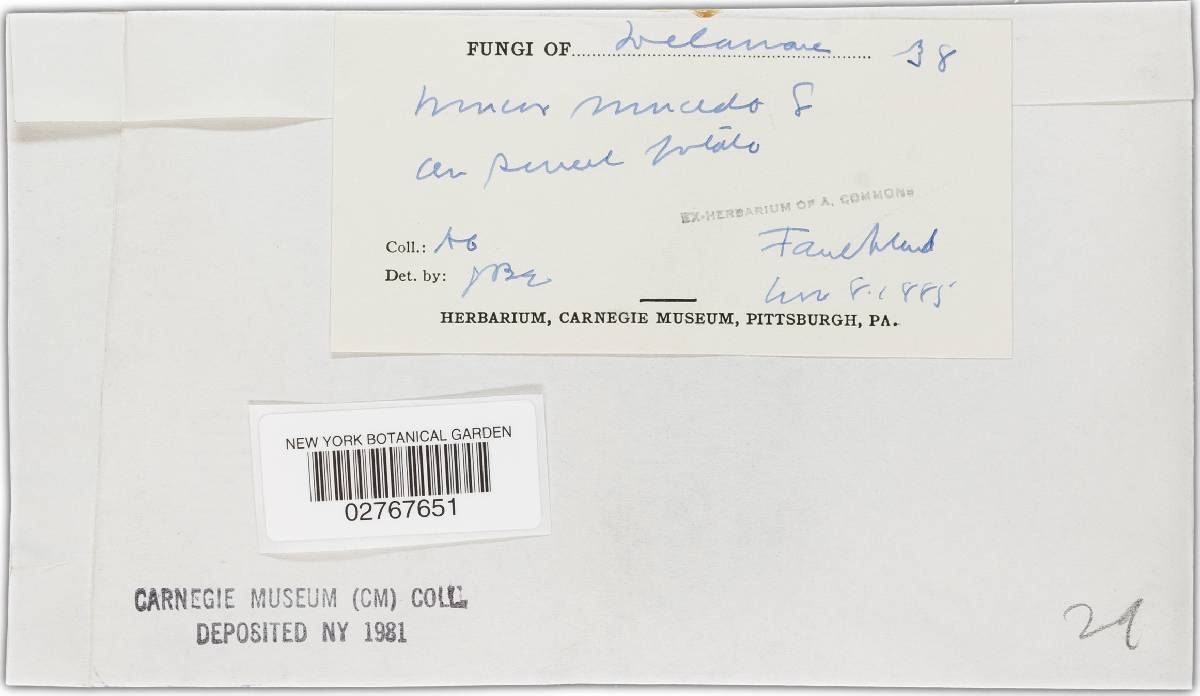 FUNGI OF Delaware 38
Mucor mucedo L
on sweet potato
EX-HERBARIUM OF A. COMMONS
Coll.: AC
Faulkland
Det. by: JBE
Nov 8. 1885
HERBARIUM, CARNEGIE MUSEUM, PITTSBURGH, PA.
NEW YORK BOTANICAL GARDEN
02767651
CARNEGIE MUSEUM (CM) COLL.
DEPOSITED NY 1981
29